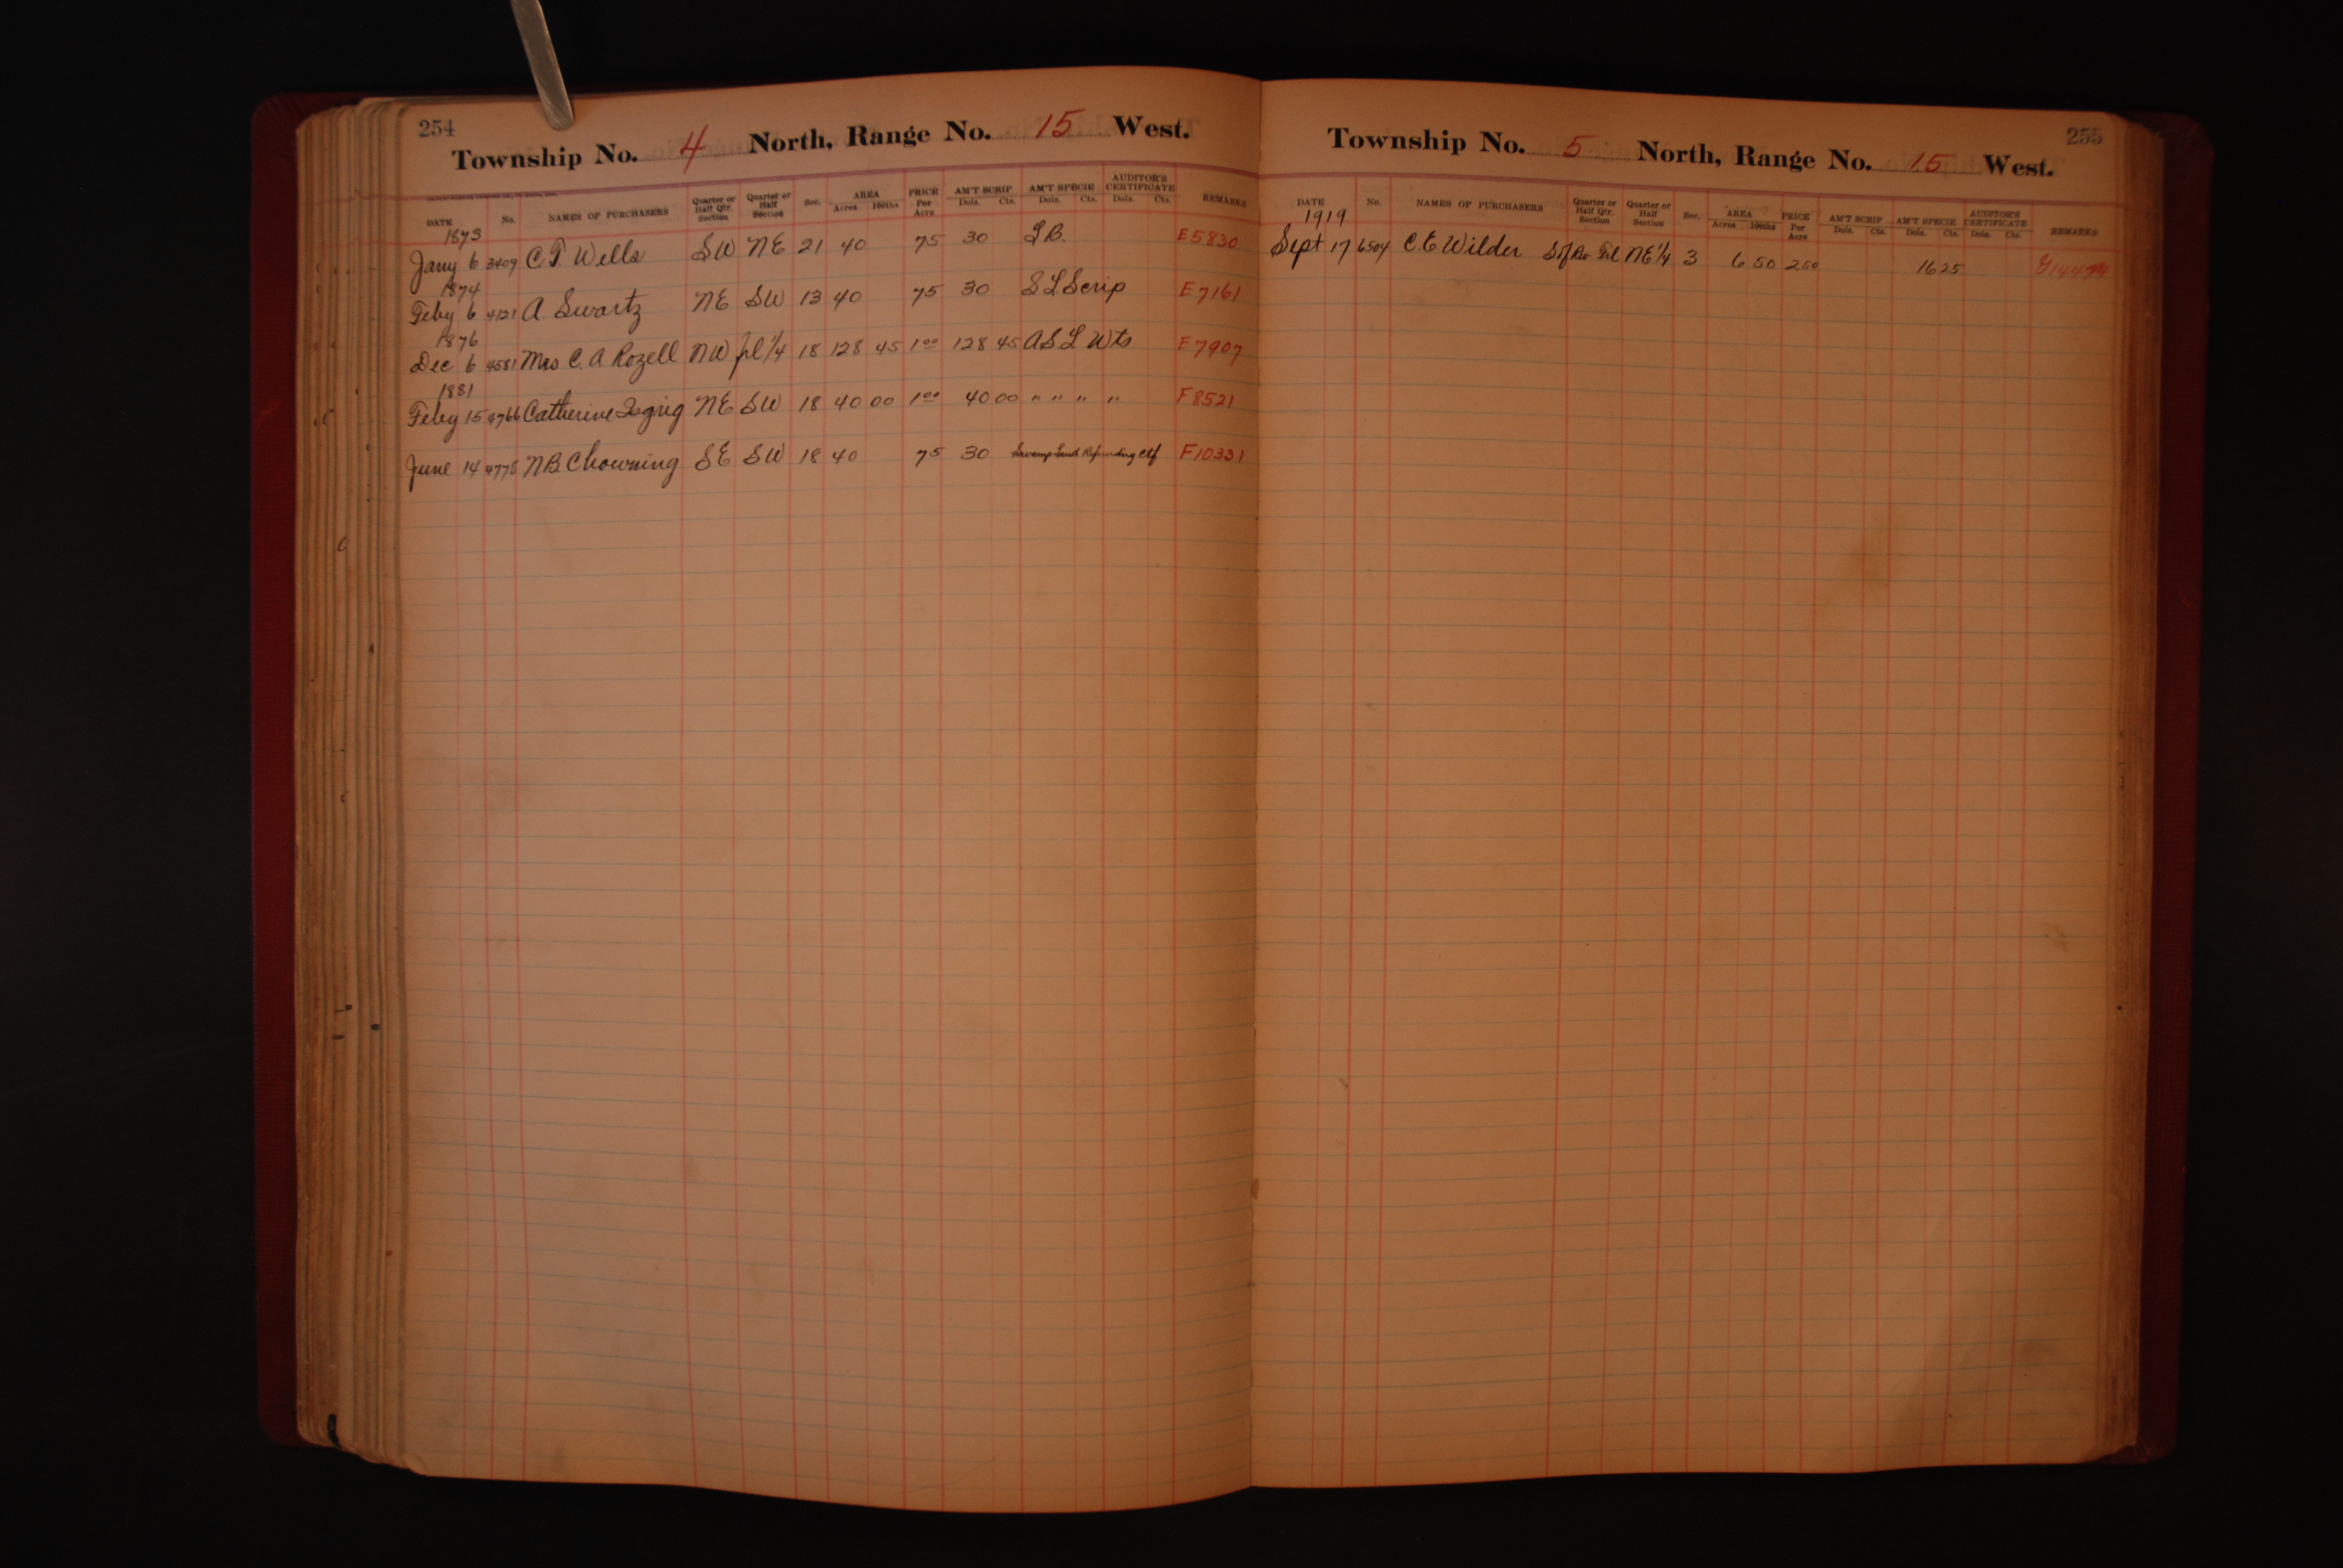 254
Township No. 4 North, Range No. 15 West.
DATE No. NAMES OF PURCHASERS Quarter or Half Qtr. Section Quarter or Half Section Sec. AREA Acres 100ths PRICE Per Acre AM'T SCRIP Dols. Cts. AM'T SPECIE Dols. Cts. AUDITOR'S CERTIFICATE Dols. Cts. REMARKS
1873
Jany 6 3409 C. T. Wells SW NE 21 40 75 30 L B. E5830
1874
Feby 6 4121 A Swartz NE SW 13 40 75 30 S L Scrip E7161
1876
Dec 6 4581 Mrs C. A Rozell NW frl 1/4 18 128 45 1 00 128 45 A S L Wts E7907
1881
Feby 15 4766 Catherine NE SW 18 40 00 1 00 40 00 " " " " F8521
June 14 4778 N B Chowning SE SW 18 40 75 30 Swamp Land Refunding Ctf F10331
255
Township No. 5 North, Range No. 15 West.
DATE No. NAMES OF PURCHASERS Quarter or Half Qtr. Section Quarter or Half Section Sec. AREA Acres 100ths PRICE Per Acre AM'T SCRIP Dols. Cts. AM'T SPECIE Dols. Cts. AUDITOR'S CERTIFICATE Dols. Cts. REMARKS
1919
Sept 17 6504 C. E. Wilder S of Riv NE 1/4 3 6 50 2 50 16 25